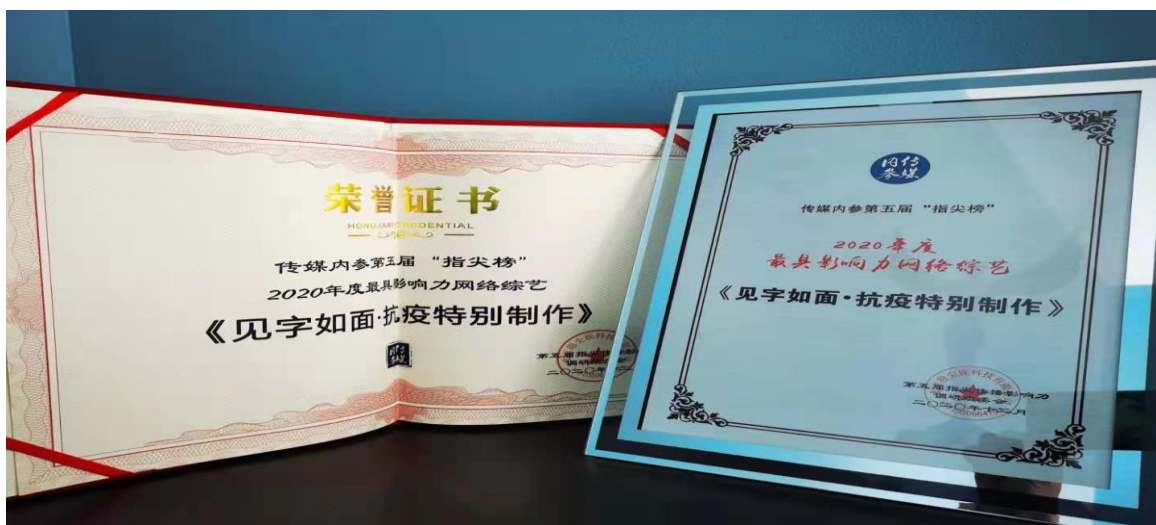 荣誉证书
HONORARY CREDENTIAL
传媒内参第五届“指尖榜”
2020年度最具影响力网络综艺
《见字如面·抗疫特别制作》
传媒内参
第五届指尖传播影响力
二〇二〇年
传媒内参
传媒内参第五届“指尖榜”
2020年度
最具影响力网络综艺
《见字如面·抗疫特别制作》
第五届指尖传播影响力
调研组委会
二〇二〇年十二月